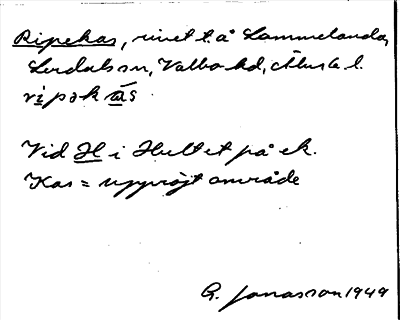 Ripekas, rivet t. å Lammelanda,
Lerdals sn, Valbo hd, Älvsb l.
ripəkas
Vid H i Hultet på ek.
Kas = uppröjt område
G. Jonasson 1949